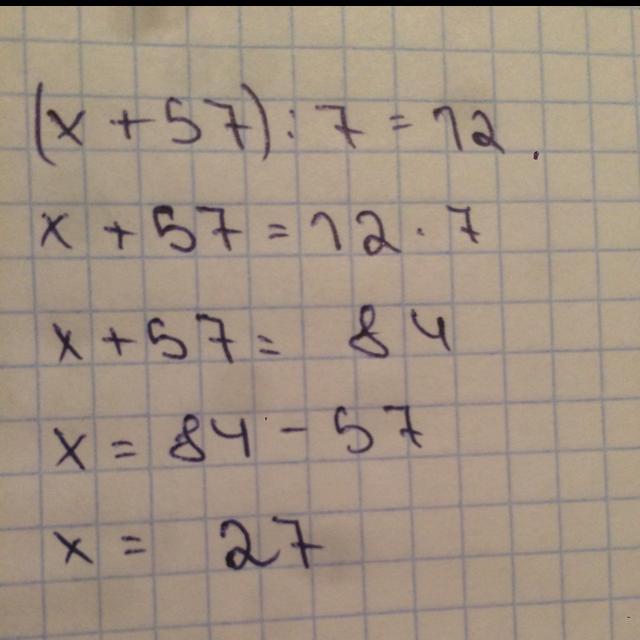 (x + 57) : 7 = 12
x + 57 = 12 · 7
x + 57 = 84
x = 84 - 57
x = 27